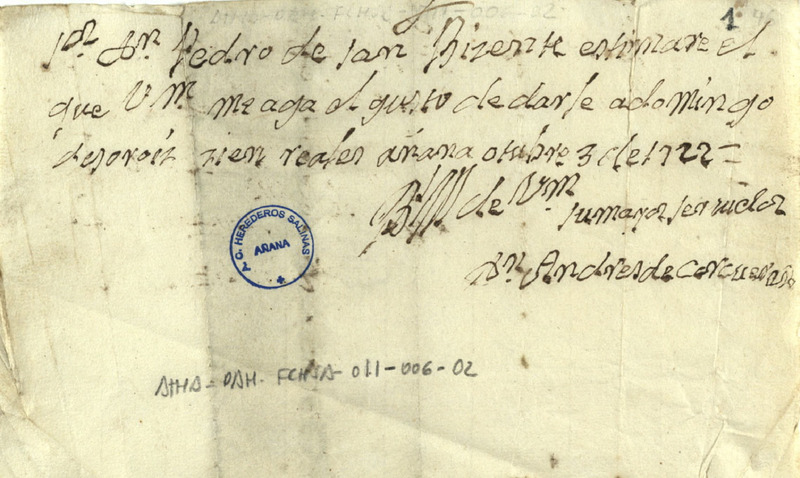 1
Sor. Dn. Pedro de san Bizente estimare el
que Vm. me aga el gusto de darle a domingo
zien reales añana otubre 3 de 1722=
B de Vm
su mayor servidor
Dn. Andres de
A. C. HEREDEROS SALINAS
AÑANA
ATHA-DAH-FCHSA-011-006-02